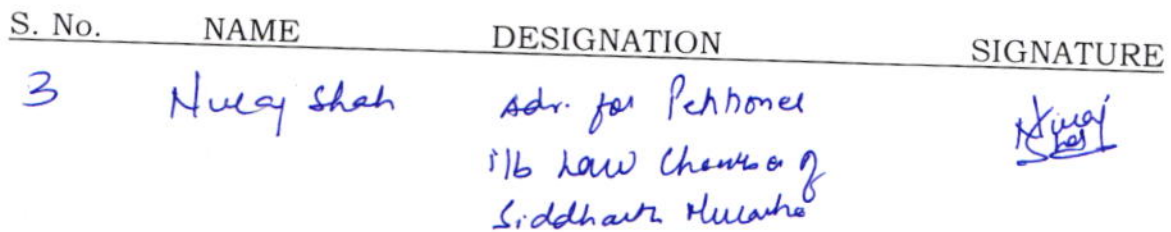 S. No. NAME DESIGNATION SIGNATURE
3 Niraj Shah Adv. for Petitioner
i/b Law Chamber of
Siddharth